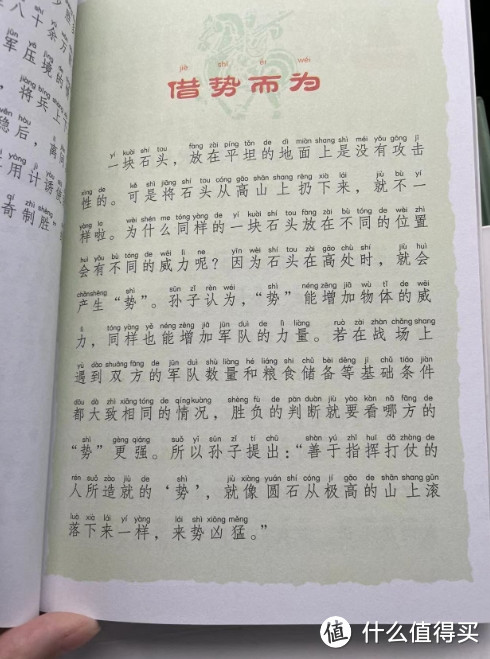 八十余万
军压境的
，将兵上下
稳后，离
用计诱
奇制胜
jiè shì ér wéi
借势而为
yí kuài shí tou fàng zài píng tǎn de dì miàn shang shì méi yǒu gōng jī
一块石头，放在平坦的地面上是没有攻击
xìng de kě shì jiāng shí tou cóng gāo shān shang rēng xià lái jiù bù yí
性的。可是将石头从高山上扔下来，就不一
yàng la wèi shén me tóng yàng de yí kuài shí tou fàng zài bù tóng de wèi zhi
样啦。为什么同样的一块石头放在不同的位置
huì yǒu bù tóng de wēi lì ne yīn wèi shí tou zài gāo chù shí jiù huì
会有不同的威力呢？因为石头在高处时，就会
chǎn shēng shì sūn zǐ rèn wéi shì néng zēng jiā wù tǐ de wēi
产生“势”。孙子认为，“势”能增加物体的威
lì tóng yàng yě néng zēng jiā jūn duì de lì liàng ruò zài zhàn chǎng shang
力，同样也能增加军队的力量。若在战场上
yù dào shuāng fāng de jūn duì shù liàng hé liáng shi chǔ bèi děng jī chǔ tiáo jiàn
遇到双方的军队数量和粮食储备等基础条件
dōu dà zhì xiāng tóng de qíng kuàng shèng fù de pàn duàn jiù yào kàn nǎ fāng de
都大致相同的情况，胜负的判断就要看哪方的
shì gèng qiáng suǒ yǐ sūn zǐ tí chū shàn yú zhǐ huī dǎ zhàng de
“势”更强。所以孙子提出：“善于指挥打仗的
rén suǒ zào jiù de shì jiù xiàng yuán shí cóng jí gāo de shān shang gǔn
人所造就的‘势’，就像圆石从极高的山上滚
luò xià lái yí yàng lái shì xiōng měng
落下来一样，来势凶猛。”
值 什么值得买